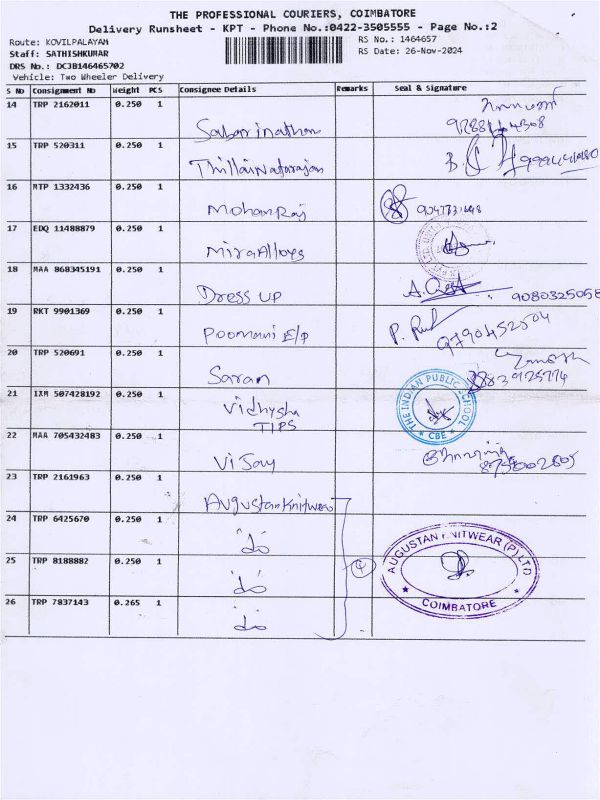 THE PROFESSIONAL COURIERS, COIMBATORE
Delivery Runsheet - KPT - Phone No.:0422-3505555 - Page No.:2
Route: KOVILPALAYAM
RS No.: 1464657
Staff: SATHISHKUMAR
RS Date: 26-Nov-2024
DRS No.: DCJB146465702
Vehicle: Two Wheeler Delivery
S No Consignment No Weight PCS Consignee Details Remarks Seal & Signature
14 TRP 2162011 0.250 1
Sabarinathan
15 TRP 520311 0.250 1
Thillai Natarajan
16 MTP 1332436 0.250 1
Mohan Raj
17 EDQ 11488879 0.250 1
Mira Alloys
18 MAA 868345191 0.250 1
Dress UP 9080325058
19 RKT 9901369 0.250 1
Poomani E/P 9790452504
20 TRP 520691 0.250 1
Saran
21 IXM 507428192 0.250 1
Vidhysha
TIPS
THE INDIAN PUBLIC SCHOOL
* CBE *
22 MAA 705432483 0.250 1
Vijay
23 TRP 2161963 0.250 1
Augustan Knitwear
24 TRP 6425670 0.250 1
do
25 TRP 8188882 0.250 1
do
④
AUGUSTAN KNITWEAR (P) LTD
* COIMBATORE *
26 TRP 7837143 0.265 1
do